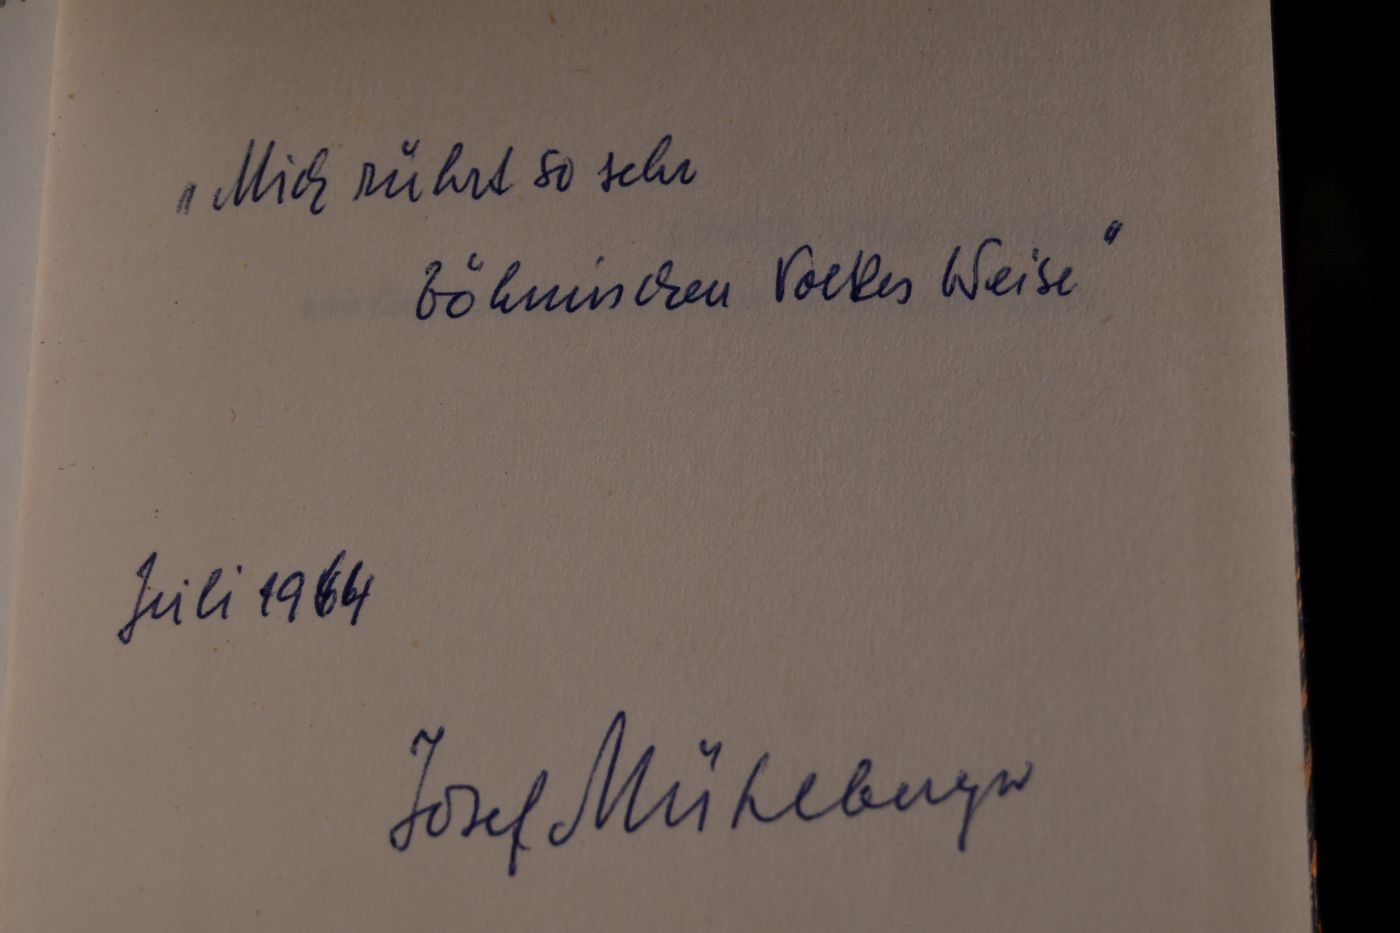 „Mich rührt so sehr
böhmischen Volkes Weise"
Juli 1964
Josef Mühlberger